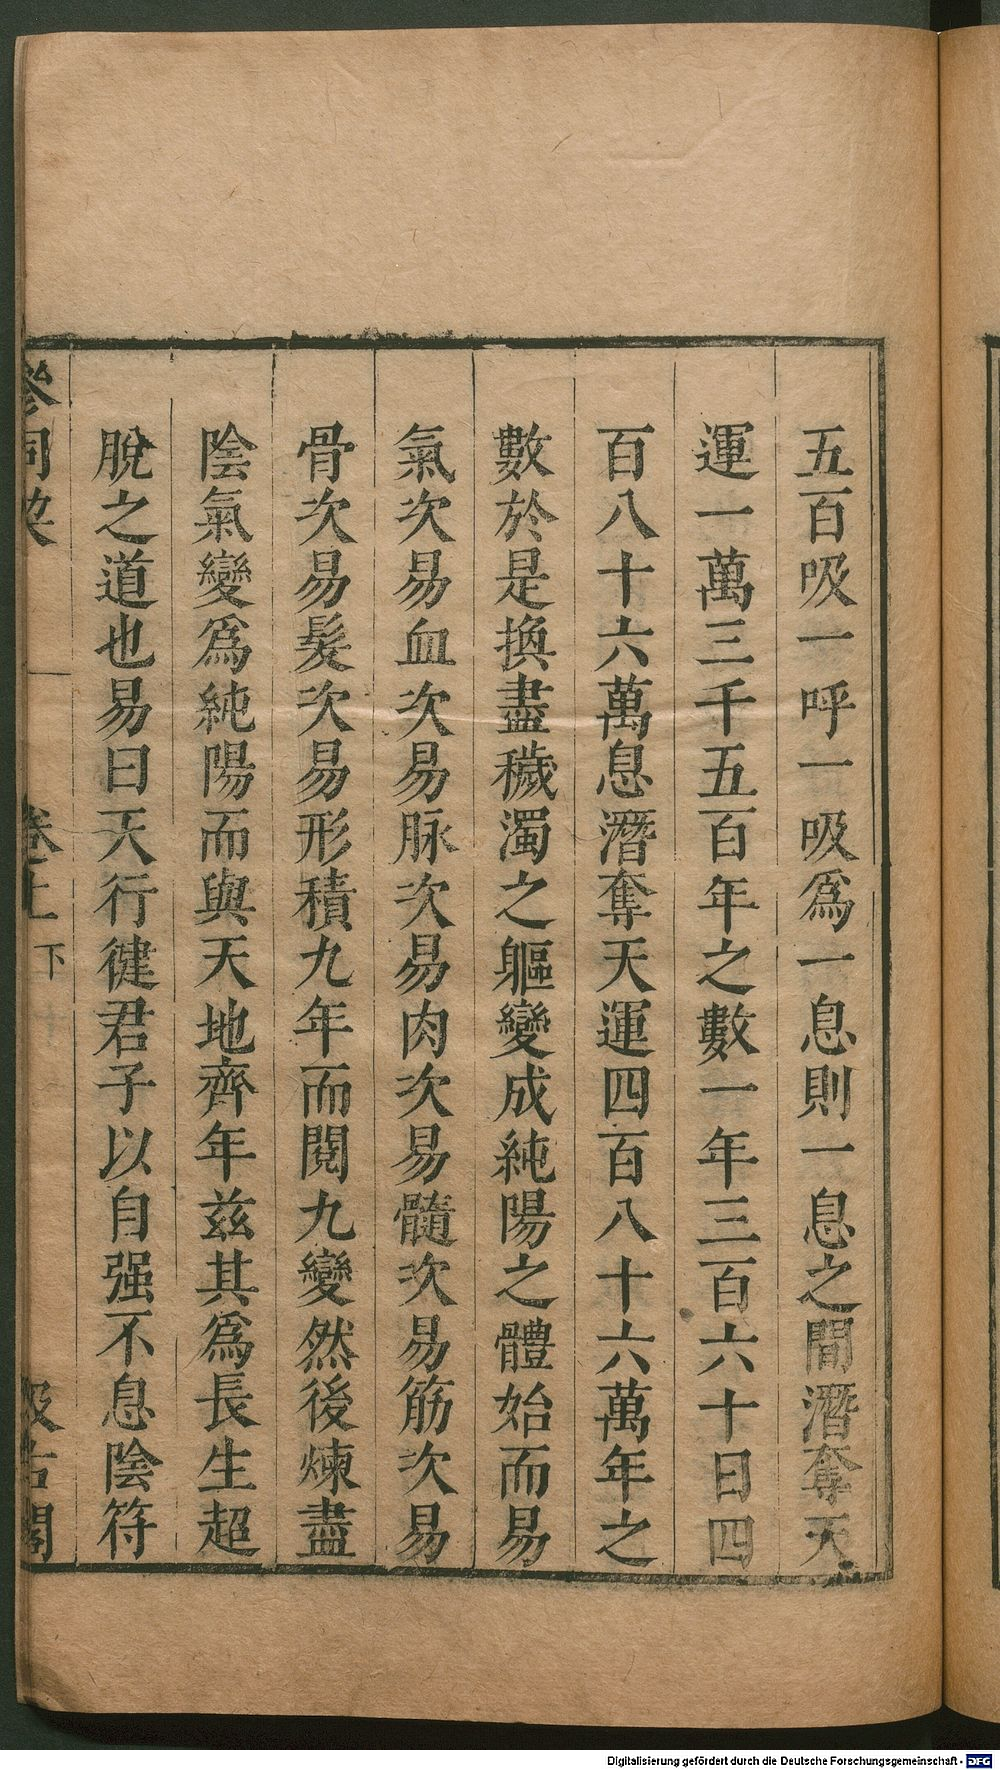 五百吸一呼一吸爲一息則一息之間潛奪天
運一萬三千五百年之數一年三百六十日四
百八十六萬息潛奪天運四百八十六萬年之
數於是換盡穢濁之軀變成純陽之體始而易
氣次易血次易脉次易肉次易髓次易筋次易
骨次易髮次易形積九年而閱九變然後煉盡
陰氣變爲純陽而與天地齊年兹其爲長生超
脫之道也易曰天行徤君子以自强不息陰符
參同契 卷上 下 汲古閣
Digitalisierung gefördert durch die Deutsche Forschungsgemeinschaft - DFG